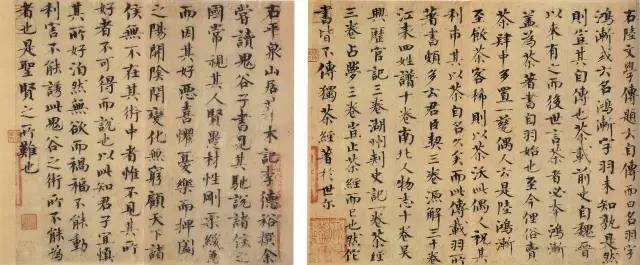 右陸文學傳題云自傳而曰名羽字
鴻漸或云名鴻漸字羽未知孰是然
則豈其自傳也茶載前史自魏晉
以來有之而後世言茶者必本鴻漸
蓋為茶著書自羽始也至今俚俗賣
茶肆中多置一甆偶人云是陸鴻漸
至飲茶客稀則以茶沃此偶人祝其
利市其以茶自名久矣而此傳載羽所
著書頗多云君臣契三卷源解三十卷
江表四姓譜十卷南北人物志十卷吳
興歷官記三卷湖州刺史記一卷茶經
三卷占夢三卷豈止茶經而已也然佗
書皆不傳獨茶經著於世尔
右平泉山居草木記李德裕撰余
嘗讀鬼谷子書見其馳說諸侯之
國常視其人賢愚材性剛柔緩急
而因其好惡喜懼憂樂而捭闔
之陽開陰闔變化無窮顧天下諸
侯無不在其術中者惟不見其所
好者不可得而說也以此知君子宜慎
其所好泊然無欲而禍福不能動
利害不能誘此鬼谷之術所不能為
者也是聖賢之所難也